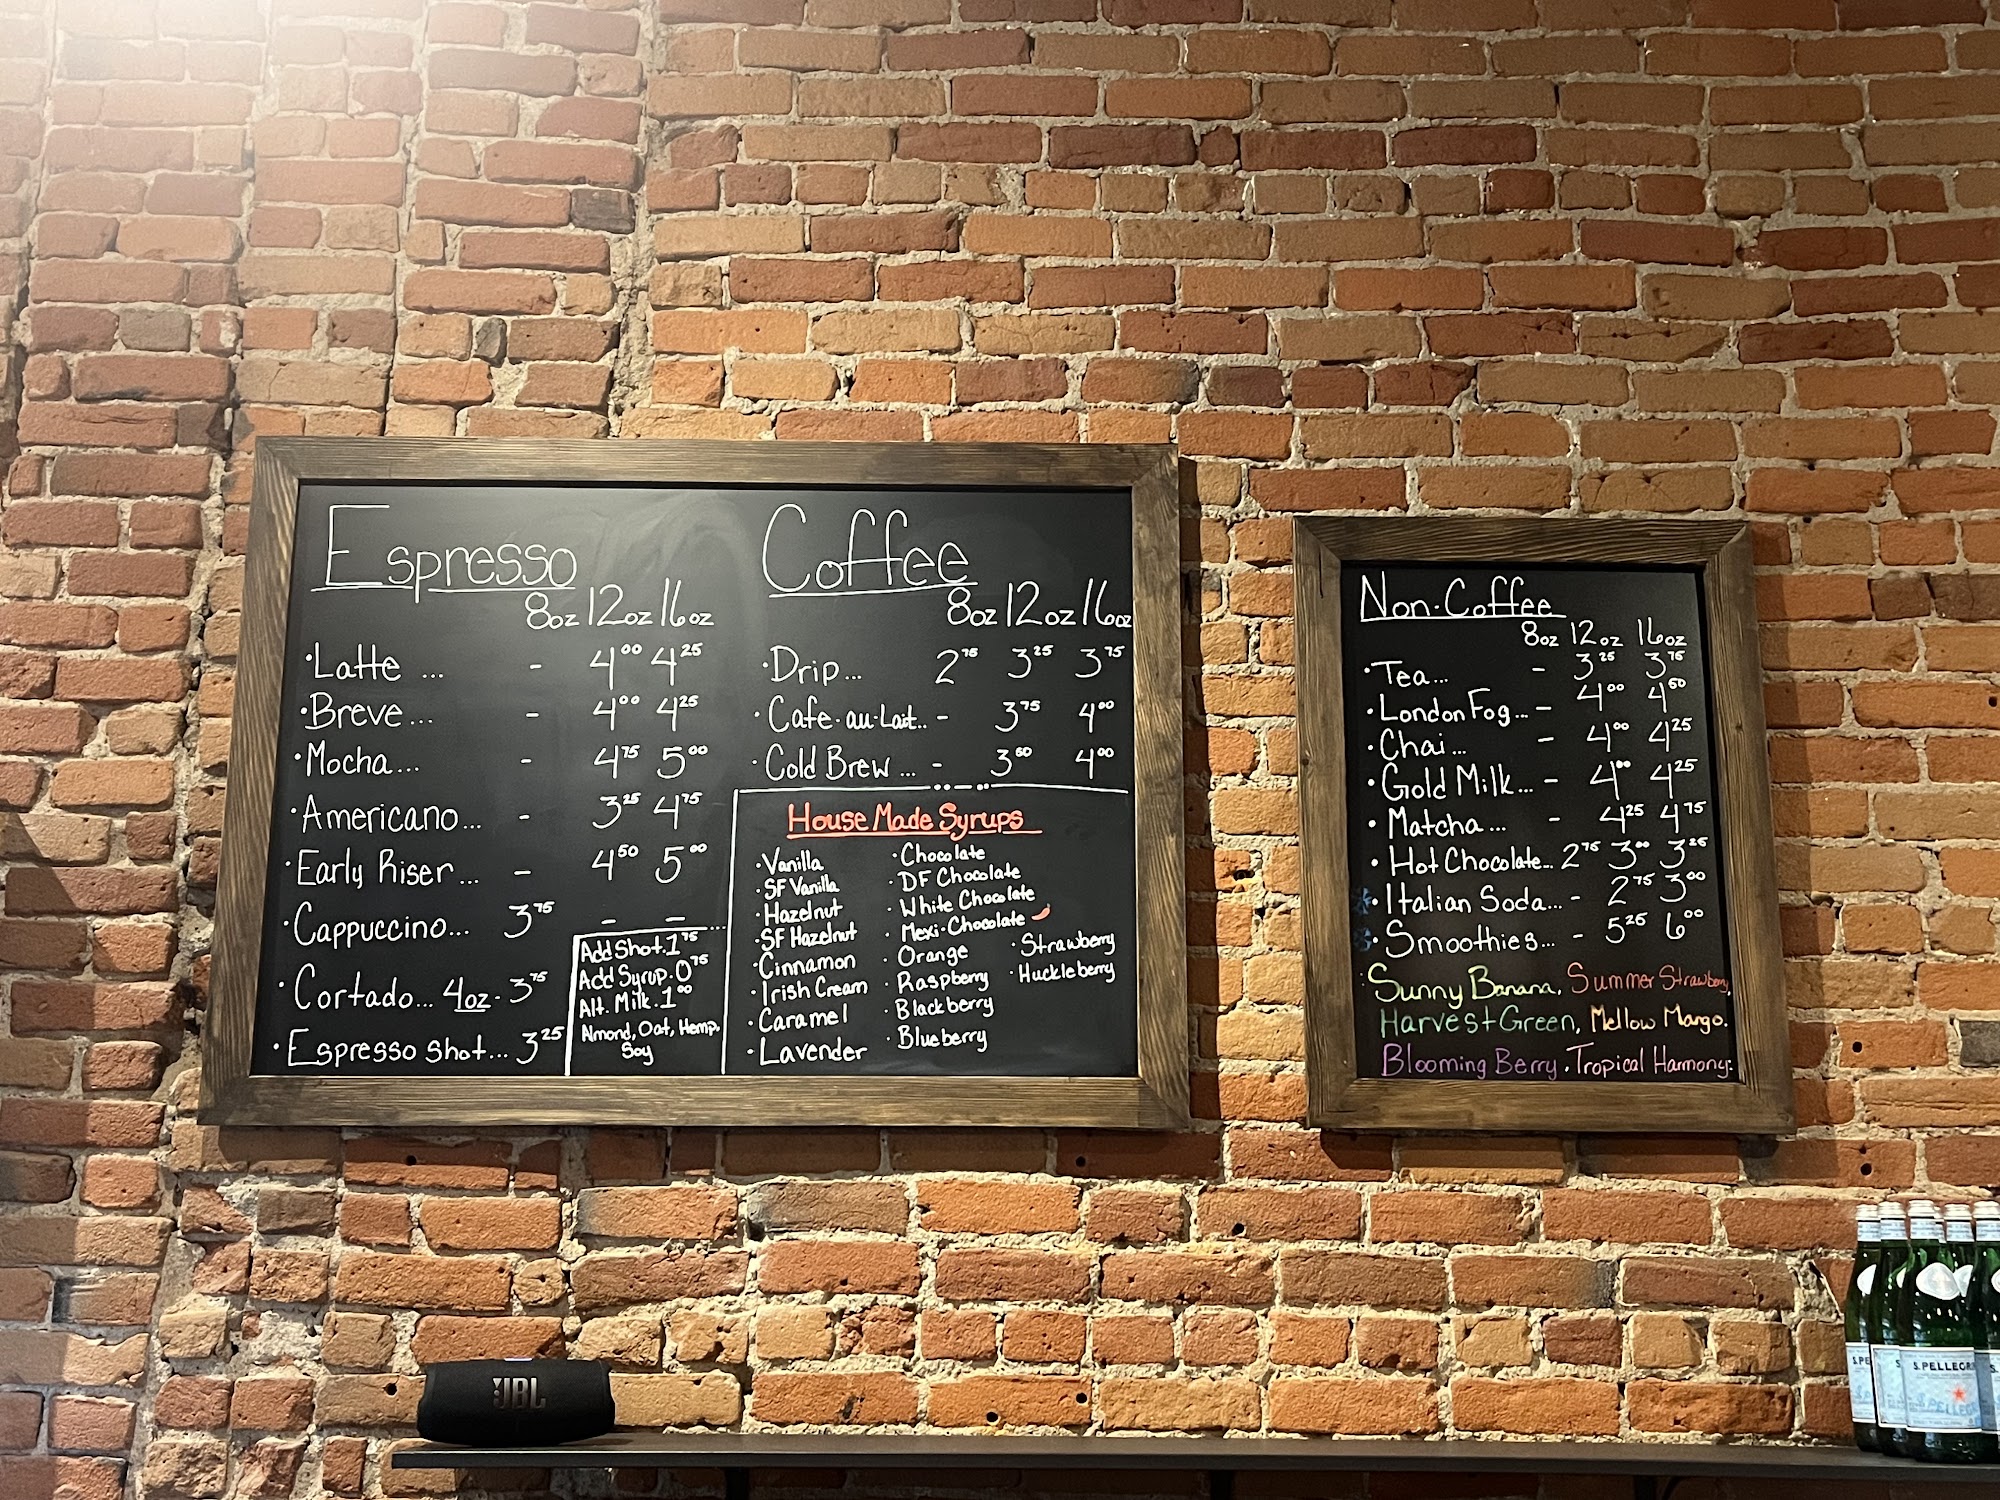 Espresso
8oz 12oz 16oz
·Latte ... - 4.00 4.25
·Breve ... - 4.00 4.25
·Mocha ... - 4.75 5.00
·Americano ... - 3.25 4.75
·Early Riser ... - 4.50 5.00
·Cappuccino ... 3.75 - -
·Cortado ... 4oz - 3.75
·Espresso shot ... 3.25
Add Shot. 1.75
Add Syrup. 0.75
Alt. Milk. 1.00
Almond, Oat, Hemp,
Soy
Coffee
8oz 12oz 16oz
·Drip ... 2.75 3.25 3.75
·Cafe-au-Lait.. - 3.75 4.00
·Cold Brew ... - 3.60 4.00
House Made Syrups
·Vanilla
·SF Vanilla
·Hazelnut
·SF Hazelnut
·Cinnamon
·Irish Cream
·Caramel
·Lavender
·Chocolate
·DF Chocolate
·White Chocolate
·Mexi-Chocolate
·Orange
·Raspberry
·Blackberry
·Blueberry
·Strawberry
·Huckleberry
Non-Coffee
8oz 12oz 16oz
·Tea ... - 3.25 3.75
·London Fog ... - 4.00 4.60
·Chai ... - 4.00 4.25
·Gold Milk ... - 4.00 4.25
·Matcha ... - 4.25 4.75
·Hot Chocolate... 2.75 3.00 3.25
·Italian Soda ... - 2.75 3.00
·Smoothies ... - 5.25 6.00
Sunny Banana, Summer Strawberry,
Harvest Green, Mellow Mango.
Blooming Berry . Tropical Harmony.
JBL
S.PELLEGRI
S.PELLEG